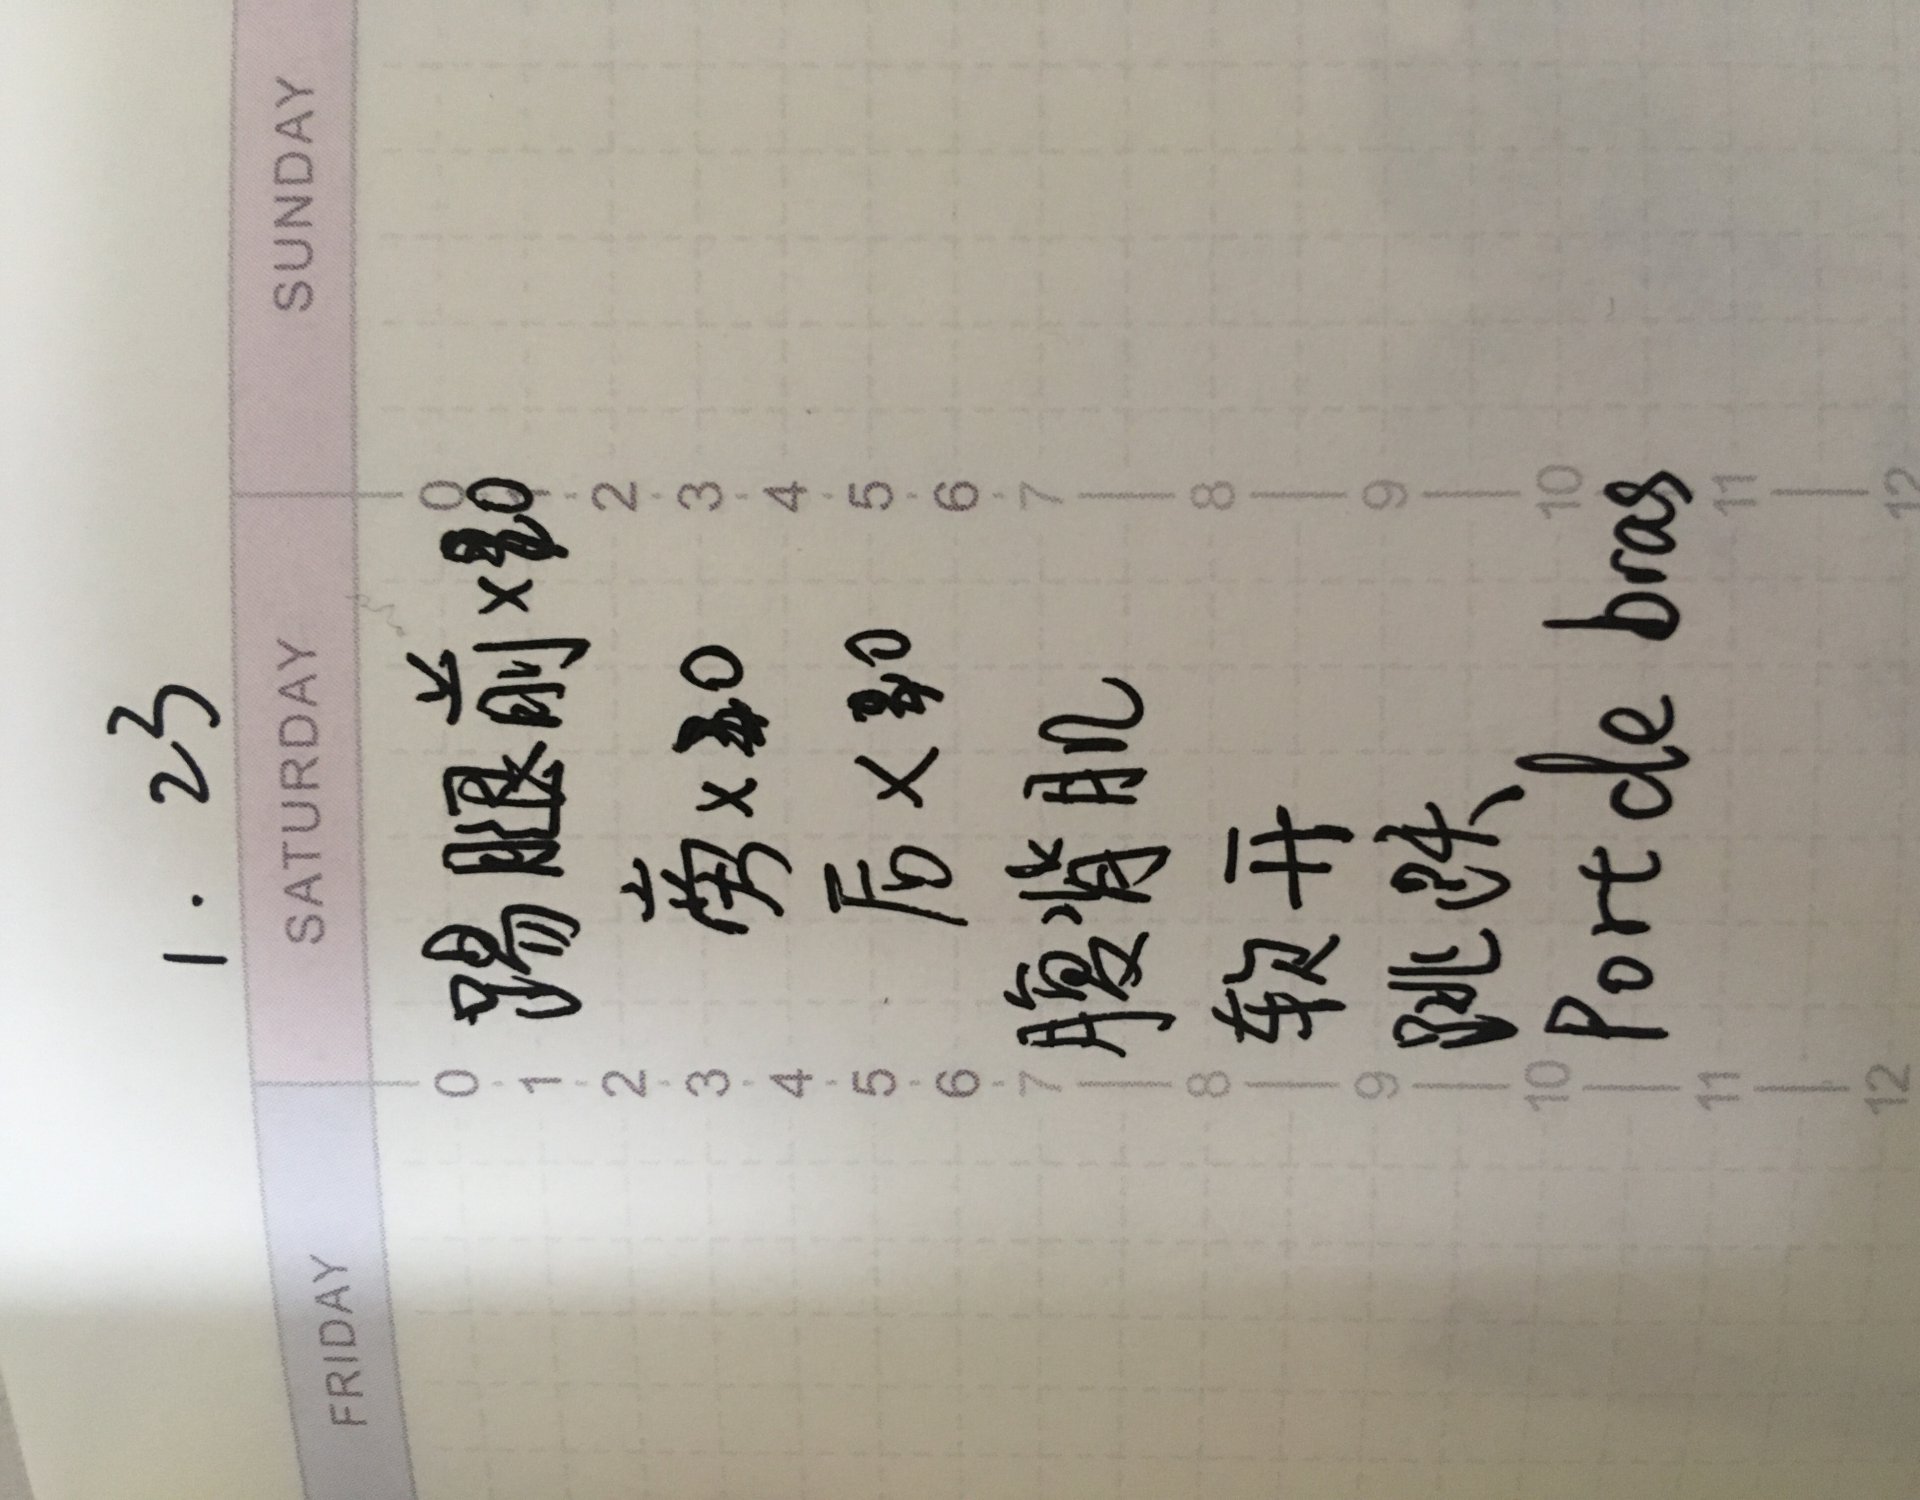 1. 23
FRIDAY SATURDAY SUNDAY
0 踢腿 前 x 0
1
2 旁 x 2
3 3
4 4
5 后 x 5
6 6
7 腹背肌 7
8 软开 8
9 跳跃 9
10 Port de bras 10
11 11
12 12